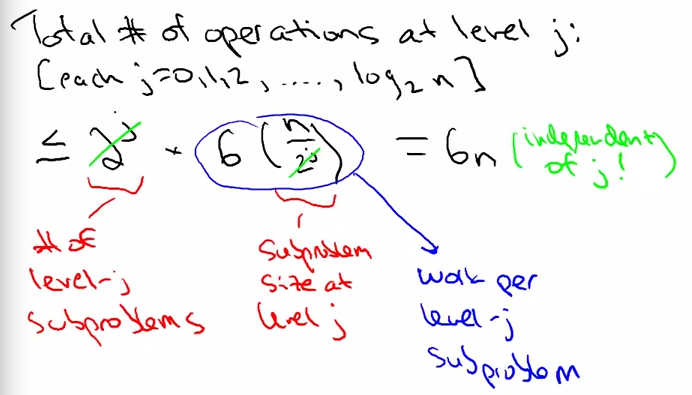 Total # of operations at level j:
[each j=0,1,2,....,log₂ n]
≤ 2^j * 6(n/2^j) = 6n (independent of j!)
# of
level-j
subproblems
subproblem
size at
level j
work per
level-j
subproblem